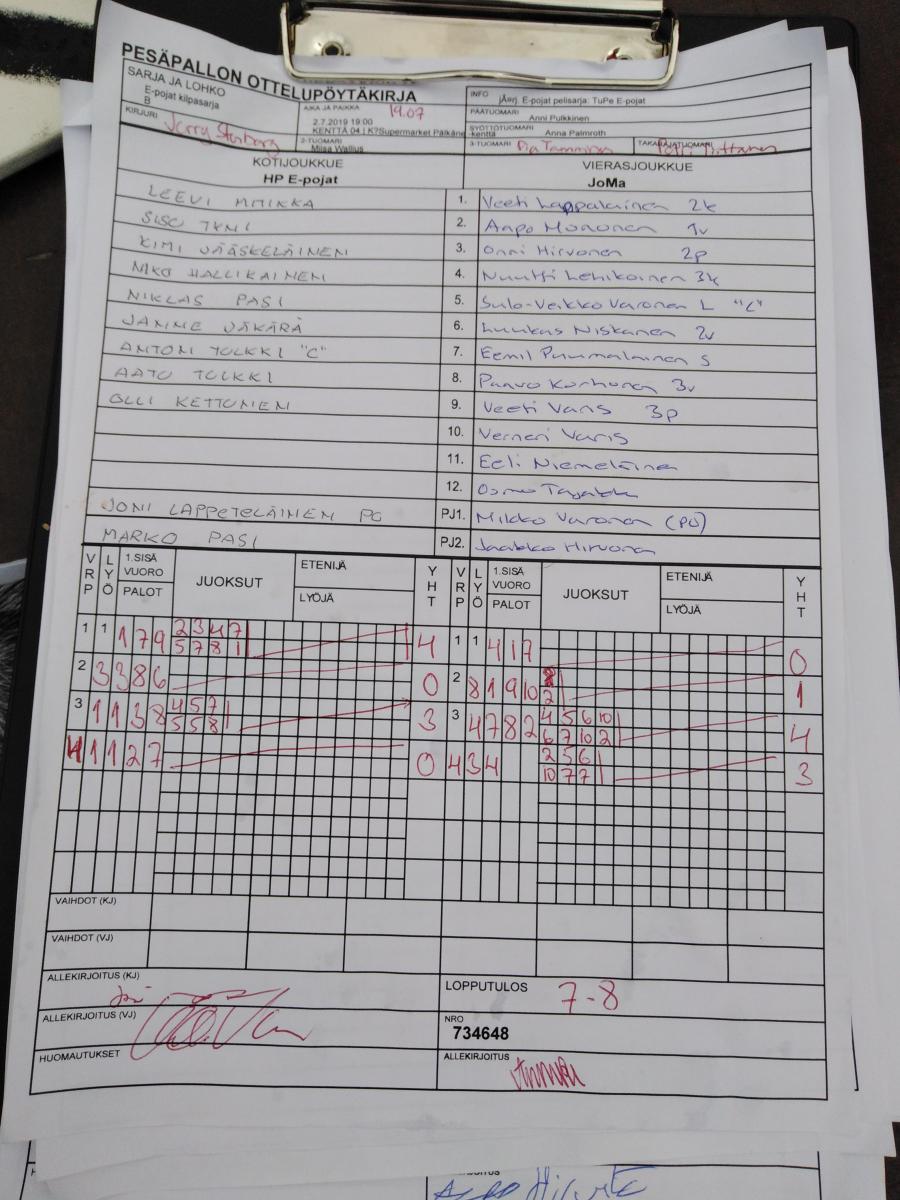 PESÄPALLON OTTELUPÖYTÄKIRJA
SARJA JA LOHKO
E-pojat kilpasarja
B
AIKA JA PAIKKA 19.07
2.7.2019 19:00
KENTTÄ 04 | K?Supermarket Pälkäne -kenttä
INFO
jÄrrj. E-pojat pelisarja: TuPe E-pojat
PÄÄTUOMARI Anni Pulkkinen
SYÖTTÖTUOMARI Anna Palmroth
KIRJURI Jerry
2-TUOMARI
Miisa Wallius
3-TUOMARI Pia Tamminen
TAKARAJATUOMARI
KOTIJOUKKUE
HP E-pojat
VIERASJOUKKUE
JoMa
LEEVI MIIKKA 1. Veeti Lappalainen 2k
SISU 2. Aapo Mononen 1v
KIMI JÄÄSKELÄINEN 3. Onni Hirvonen 2p
NIKO HALLIKAINEN 4. Nuutti Lehikoinen 3k
NIKLAS PASI 5. Sulo-Veikko Varonen L "C"
JANNE JÄKÄRÄ 6. Luukas Niskanen 2v
ANTON TOLKKI "C" 7. Eemil Puumalainen S
AATU TOLKKI 8. Paavo Korhonen 3v
OLLI KETTUNEN 9. Veeti Varis 3p
10. Verneri Varis
11. Eeli Niemeläinen
12. Osmo
JONI LAPPETELÄINEN PJ1. Mikko Varonen (PJ)
MARKO PASI PJ2. Jaakko Hirvonen
VRP LYÖ 1.SISÄ VUORO PALOT JUOKSUT ETENIJÄ LYÖJÄ YHT VRP LYÖ 1.SISÄ VUORO PALOT JUOKSUT ETENIJÄ LYÖJÄ YHT
1 1 1 7 9 2 3 4 7 4 1 1 4 1 7 0
5 7 8 1
2 3 3 8 6 0 2 8 1 9 10 1
2
3 1 1 3 8 4 5 7 3 3 4 7 8 2 4 5 6 10 4
5 5 8 6 7 10 2
4 1 1 2 7 0 4 3 4 2 5 6 3
10 7 7
VAIHDOT (KJ)
VAIHDOT (VJ)
ALLEKIRJOITUS (KJ)
LOPPUTULOS 7-8
ALLEKIRJOITUS (VJ)
NRO
734648
HUOMAUTUKSET
ALLEKIRJOITUS